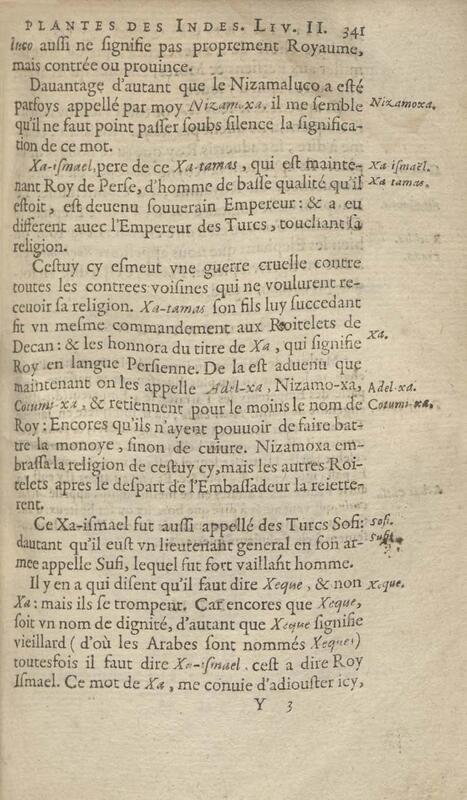 PLANTES DES INDES. LIV. II. 341
luco aussi ne signifie pas proprement Royaume,
mais contrée ou prouince.
Dauantage d'autant que le Nizamaluco a esté
parfoys appellé par moy Nizamoxa, il me semble
Nizamoxa.
qu'il ne faut point passer soubs silence la significa-
tion de ce mot.
Xa-ismael, pere de ce Xa-tamas, qui est mainte-
Xa ismaël.
nant Roy de Perse, d'homme de basse qualité qu'il
Xa tamas.
estoit, est deuenu souuerain Empereur: & a eu
different auec l'Empereur des Turcs, touchant sa
religion.
Cestuy cy esmeut vne guerre cruelle contre
toutes les contrees voisines qui ne voulurent re-
ceuoir sa religion. Xa-tamas son fils luy succedant
fit vn mesme commandement aux Roitelets de
Decan: & les honnora du titre de Xa, qui signifie
Xa.
Roy en langue Persienne. De la est aduenu que
maintenant on les appelle Adel-xa, Nizamo-xa,
Adel-xa.
Cotumi-xa, & retiennent pour le moins le nom de
Cotumi-xa.
Roy: Encores qu'ils n'ayent pouuoir de faire bat-
tre la monoye, sinon de cuiure. Nizamoxa em-
brassa la religion de cestuy cy, mais les autres Roi-
telets apres le despart de l'Embassadeur la reiette-
rent.
Ce Xa-ismael fut aussi appellé des Turcs Sofi:
Sofi.
dautant qu'il eust vn lieutenant general en son ar-
Sufi.
mee appelle Sufi, lequel fut fort vaillant homme.
Il y en a qui disent qu'il faut dire Xeque, & non
Xeque.
Xa: mais ils se trompent. Car encores que Xeque,
soit vn nom de dignité, d'autant que Xeque signifie
vieillard (d'où les Arabes sont nommés Xeques)
toutesfois il faut dire Xa-ismael, cest a dire Roy
Ismael. Ce mot de Xa, me conuie d'adiouster icy,
Y 3